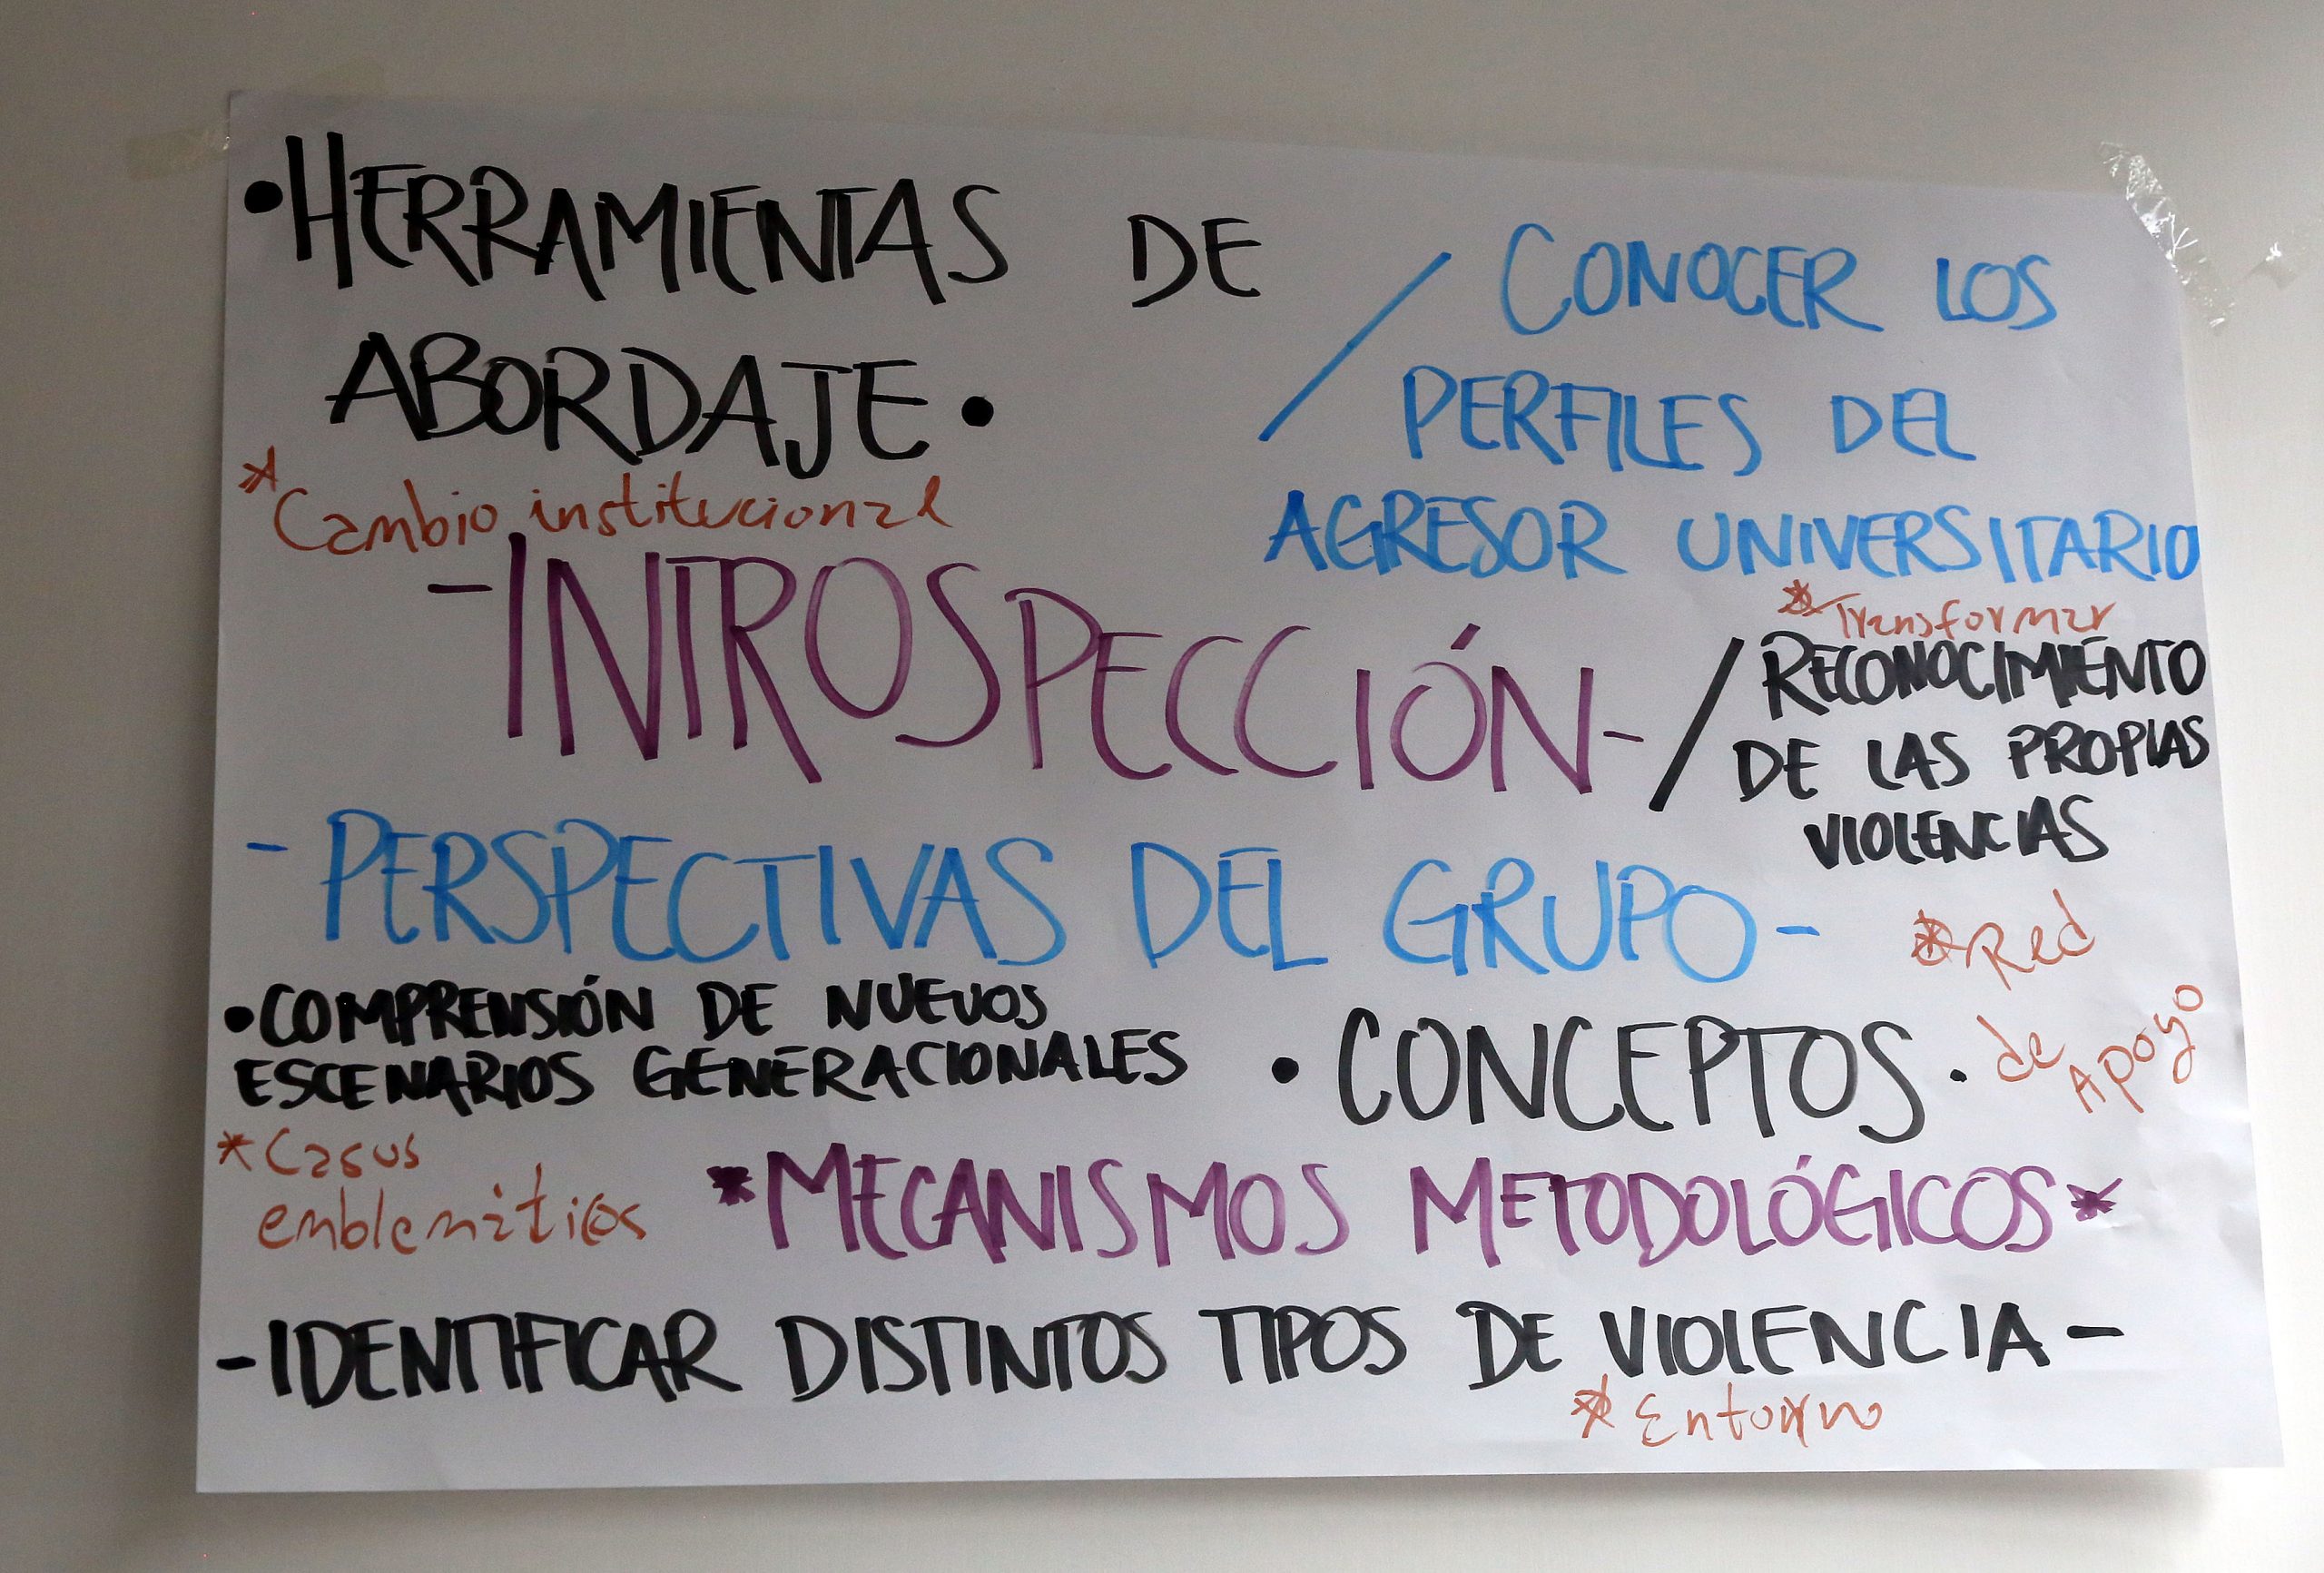 •HERRAMIENTAS DE
ABORDAJE•
*Cambio institucional
/ CONOCER LOS
PERFILES DEL
AGRESOR UNIVERSITARIO
*Transformar
-INTROSPECCIÓN-
/ RECONOCIMIENTO
DE LAS PROPIAS
VIOLENCIAS
-PERSPECTIVAS DEL GRUPO-
*Red
de Apoyo
•COMPRENSIÓN DE NUEVOS
ESCENARIOS GENERACIONALES
•CONCEPTOS.
*Casos
emblemáticos
*MECANISMOS METODOLÓGICOS*
-IDENTIFICAR DISTINTOS TIPOS DE VIOLENCIA-
*Entorno